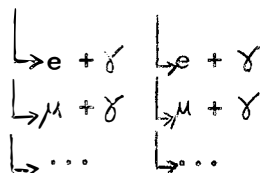 ↳ e + γ ↳ e + γ
↳ μ + γ ↳ μ + γ
↳ ... ↳ ...